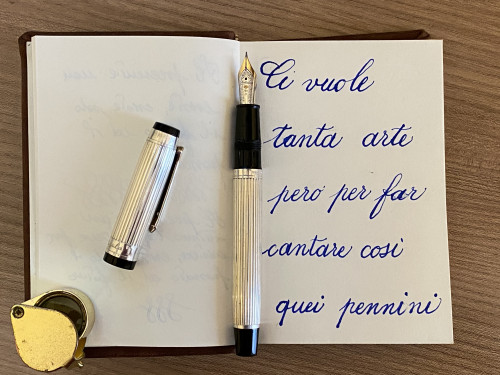 Ci vuole
tanta arte
però per far
cantare così
quei pennini